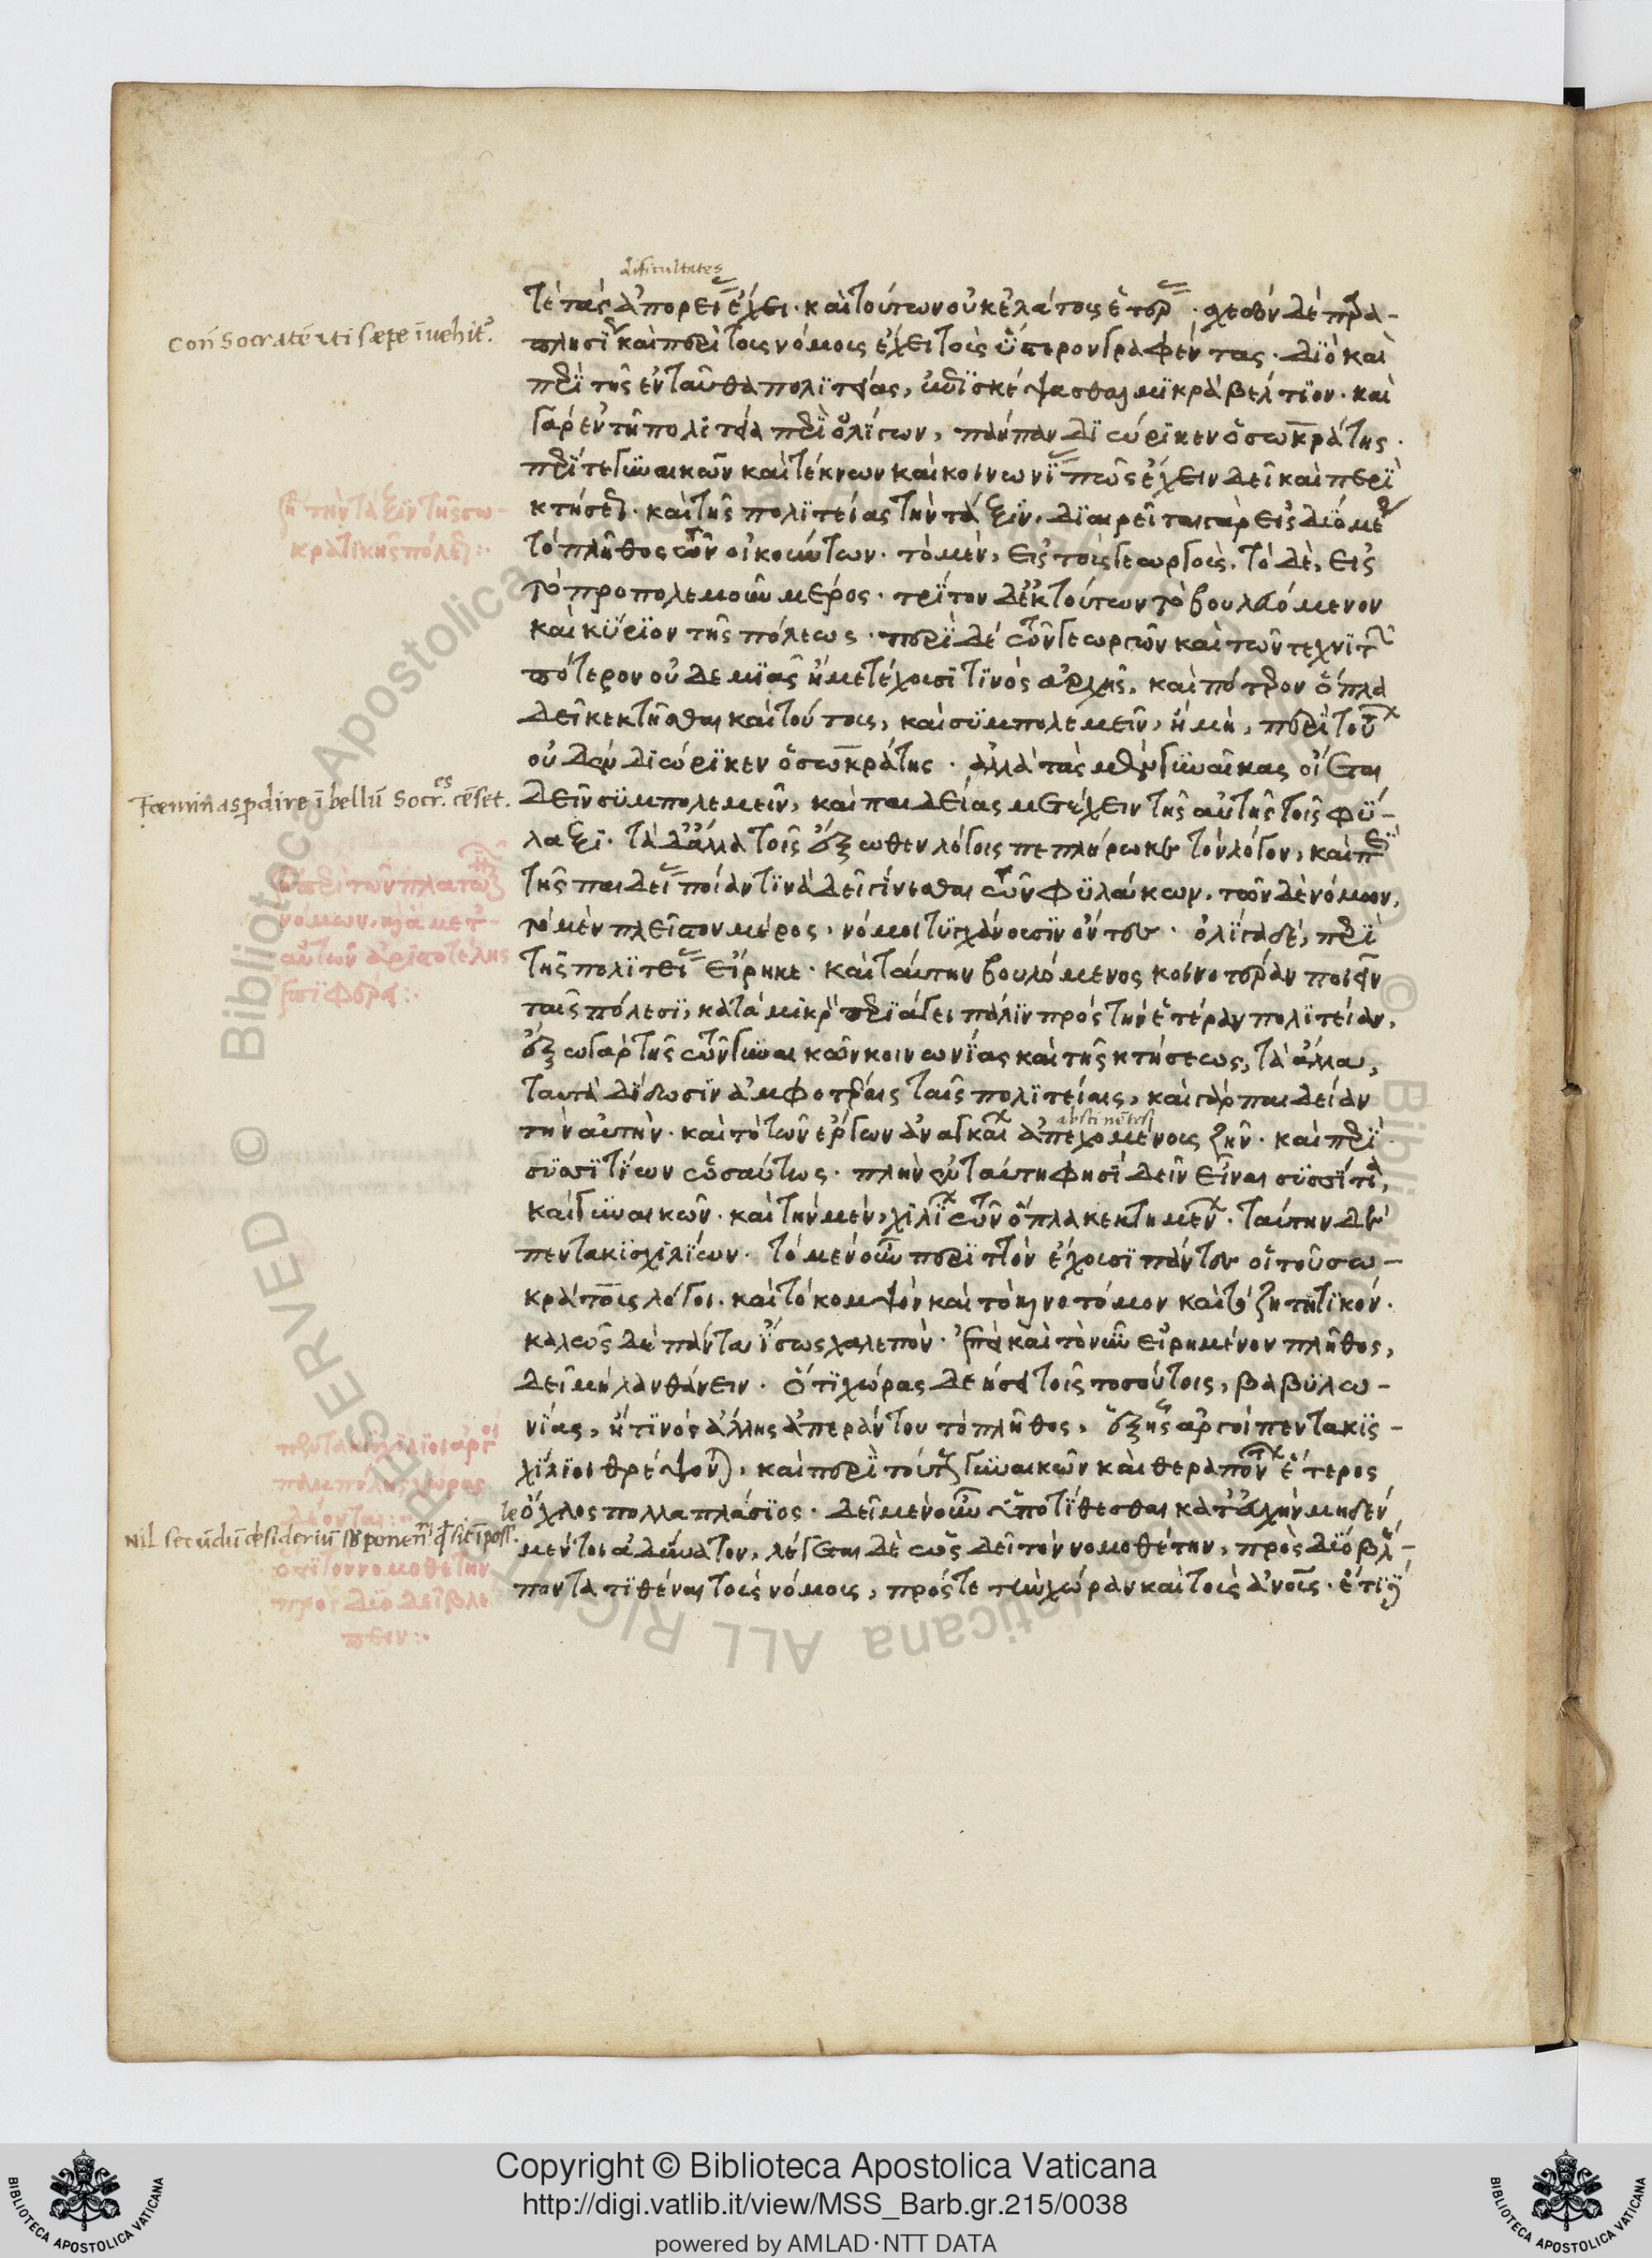 dificultates
τε τὰς ἀπορείας ἔχει. καὶ τούτων οὐκ ἐλάττους ἑτέρας. σχεδὸν δὲ παρα-
πλησίως καὶ περὶ τοὺς νόμους ἔχει τοὺς ὕστερον γραφέντας. διὸ καὶ
περὶ τῆς ἐνταῦθα πολιτείας, ἐπισκέψασθαι μικρὰ βέλτιον. καὶ
γὰρ ἐν τῇ πολιτεία περὶ ὀλίγων, πάμπαν διώρικεν ὁ σωκράτης.
περί τε γυναικῶν καὶ τέκνων καὶ κοινωνίας πῶς ἔχειν δεῖ καὶ περὶ
κτήσεως. καὶ τῆς πολιτείας τὴν τάξιν. διαιρεῖται γὰρ εἰς δύο μέρη
τὸ πλῆθος τῶν οἰκούντων. τὸ μὲν, εἰς τοὺς γεωργοὺς. τὸ δὲ, εἰς
τὸ προπολεμοῦν μέρος. τρίτον δ' ἐκ τούτων τὸ βουλευόμενον
καὶ κύριον τῆς πόλεως. περὶ δὲ τῶν γεωργῶν καὶ τῶν τεχνιτῶν
πότερον οὐδεμιᾶς ἢ μετέχουσί τινος ἀρχῆς, καὶ πότερον ὅπλα
δεῖ κεκτῆσθαι καὶ τούτους, καὶ συμπολεμεῖν, ἢ μὴ, περὶ τούτων
οὐδὲν διώρικεν ὁ σωκράτης. ἀλλὰ τὰς μὲν γυναῖκας οἴεται
δεῖν συμπολεμεῖν, καὶ παιδείας μετέχειν τῆς αὐτῆς τοῖς φύ-
λαξι. τὰ δ' ἄλλα τοῖς ἔξωθεν λόγοις πεπλήρωκε τὸν λόγον, καὶ περὶ
τῆς παιδείας ποίαν τινὰ δεῖ γίνεσθαι τῶν φυλάκων. τῶν δὲ νόμων,
τὸ μὲν πλεῖστον μέρος, νόμοι τυγχάνουσιν ὄντες. ὀλίγα δὲ, περὶ
τῆς πολιτείας εἴρηκε. καὶ ταύτην βουλόμενος κοινοτέραν ποιεῖν
ταῖς πόλεσι, κατὰ μικρὸν περιάγει πάλιν πρὸς τὴν ἑτέραν πολιτείαν.
ἔξω γὰρ τῆς τῶν γυναικῶν κοινωνίας καὶ τῆς κτήσεως, τὰ ἄλλα,
ταυτὰ δίδωσιν ἀμφοτέραις ταῖς πολιτείαις, καὶ γὰρ παιδείαν
abstinētes
τὴν αὐτὴν. καὶ τὸ τῶν ἔργων ἀναγκαίων ἀπεχομένους ζῆν. καὶ περὶ
συσσιτίων ὡσαύτως. πλὴν ἐν ταύτη φησὶ δεῖν εἶναι συσσίτια,
καὶ γυναικῶν. καὶ τὴν μὲν, χιλίων τῶν ὅπλα κεκτημένων. ταύτην δὲ
πεντακισχιλίων. τὸ μὲν οὖν περιττὸν ἔχουσι πάντες οἱ τοῦ σω-
κράτους λόγοι. καὶ τὸ κομψὸν καὶ τὸ καινοτόμον καὶ τὸ ζητητικόν.
καλῶς δὲ πάντα ἴσως χαλεπὸν. ἐπεὶ καὶ τὸ νῦν εἰρημένον πλῆθος,
δεῖ μὴ λανθάνειν. ὅτι χώρας δεήσει τοῖς τοσούτοις, βαβυλω-
νίας, ἤ τινος ἄλλης ἀπεράντου τὸ πλῆθος, ἐξ ἧς ἀργοὶ πεντακισ-
χίλιοι θρέψονται, καὶ περὶ τούτους γυναικῶν καὶ θεραπόντων ἕτερος
ὄχλος πολλαπλάσιος. δεῖ μὲν οὖν ὑποτίθεσθαι κατ' εὐχὴν μηδὲν
μέντοι ἀδύνατον, λέγεται δὲ ὡς δεῖ τὸν νομοθέτην, πρὸς δύο βλέ-
ποντα τιθέναι τοὺς νόμους, πρός τε τὴν χώραν καὶ τοὺς ἀνους. ἔτι δὲ
Con̄ Socratē
sæpe īvehit͛.
τὴν τάξιν τῆς σω-
κρατικῆς πόλεως:·
Fœminas ꝑdire ī bellū Socr.es cēset.
περὶ τῶν πλατωνος
νόμων.
αὐτῶν ἀριστοτέλης
πεντακισχίλιοι ἀργοὶ
παμπόλης χώρας
δέονται:·
Nil secūdū desideriū
ὅτι τὸν νομοθέτην
πρὸς δύο δεῖ βλε
πειν:·
© Biblioteca Apostolica Vaticana ALL RIGHTS RESERVED
Copyright © Biblioteca Apostolica Vaticana
http://digi.vatlib.it/view/MSS_Barb.gr.215/0038
powered by AMLAD·NTT DATA
BIBLIOTECA APOSTOLICA VATICANA
BIBLIOTECA APOSTOLICA VATICANA